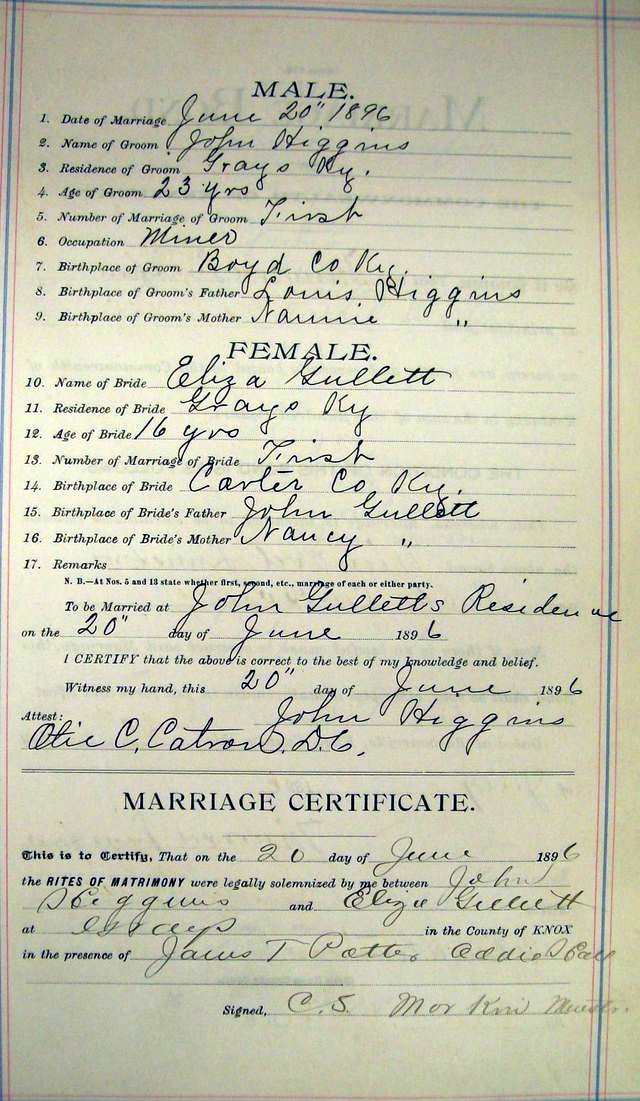 MALE.
1. Date of Marriage June 20" 1896
2. Name of Groom John Higgins
3. Residence of Groom Grays Ky.
4. Age of Groom 23 yrs
5. Number of Marriage of Groom First
6. Occupation Miner
7. Birthplace of Groom Boyd Co Ky.
8. Birthplace of Groom's Father Louis Higgins
9. Birthplace of Groom's Mother Nannie "
FEMALE.
10. Name of Bride Eliza Gullett
11. Residence of Bride Grays Ky
12. Age of Bride 16 yrs
13. Number of Marriage of Bride First
14. Birthplace of Bride Carter Co Ky.
15. Birthplace of Bride's Father John Gullett
16. Birthplace of Bride's Mother Nancy "
17. Remarks
N. B.—At Nos. 5 and 13 state whether first, second, etc., marriage of each or either party.
To be Married at John Gulletts Residence
on the 20" day of June 1896
I CERTIFY that the above is correct to the best of my knowledge and belief.
Witness my hand, this 20" day of June 1896
John Higgins
Attest:
Otie C. Catron D.C.
MARRIAGE CERTIFICATE.
This is to Certify, That on the 20 day of June 1896
the RITES OF MATRIMONY were legally solemnized by me between John
Higgins and Eliza Gullett
at Grays in the County of KNOX
in the presence of James T Potter Addie
Signed, C. S.